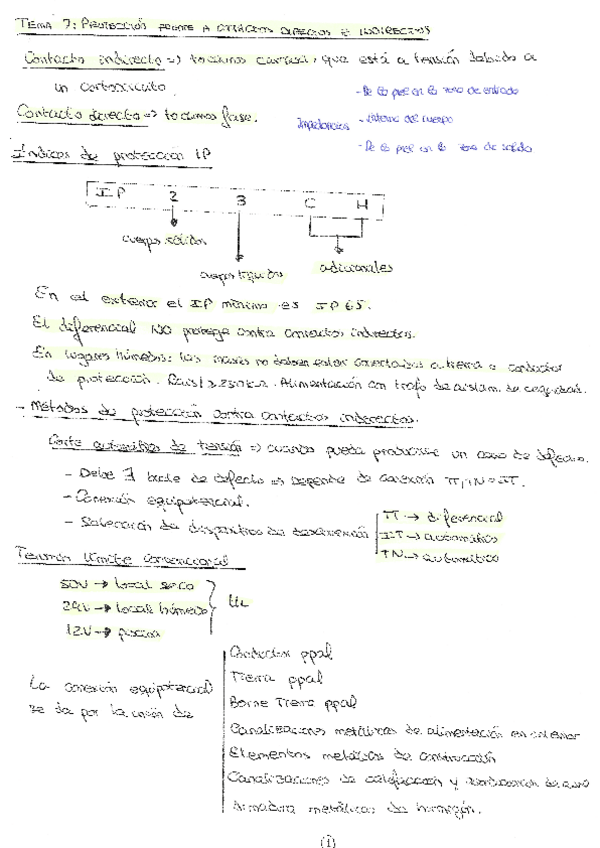 TEMA 7: PROTECCIÓN FRENTE A CONTACTOS DIRECTOS E INDIRECTOS
Contacto indirecto => tocamos carcasa, que está a tensión debido a
un cortocircuito.
- De la piel en la zona de entrada
Contacto directo => tocamos fase.
Impedancias - Interna del cuerpo
- De la piel en la zona de salida
Índices de protección IP
IP 2 3 C H
cuerpos sólidos
cuerpos líquidos
adicionales
En el exterior el IP mínimo es IP 65.
El diferencial NO protege contra contactos indirectos.
En lugares húmedos: las masas no deben estar conectadas a tierra o conductor
de protección. Alimentación con trafo de aislam. de seguridad.
- Métodos de protección contra contactos indirectos.
Corte automático de tensión => cuando pueda producirse un caso de defecto.
- Debe ∃ bucle de defecto => Depende de conexión TT, TN o IT.
- Conexión equipotencial.
- Selección de dispositivo de desconexión
TT → diferencial
IT → automático
TN → automático
Tensión límite convencional
50V → local seco
24V → local húmedo
12V → piscina
UL
La conexión equipotencial
se da por la unión de
Conductor ppal
Tierra ppal
Borne Tierra ppal
Canalizaciones metálicas de alimentación en interior
Elementos metálicos de construcción
Canalizaciones de calefacción y
Armadura metálicas de hormigón.
(1)